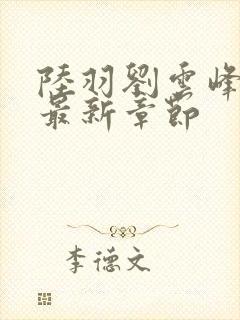 陸羽劉雲峰
最新章節
李德文